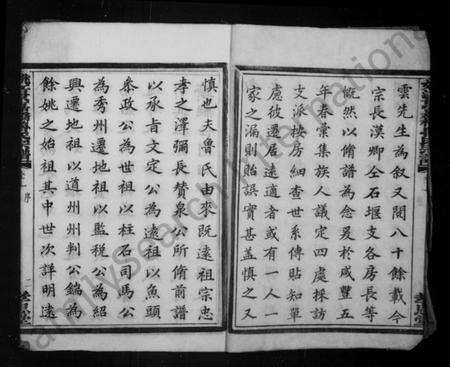 雲先生為敘又閱八十餘載今
宗長漢卿仝石堰支各房長等
慨然以脩譜為念爰於咸豐五
年春彙集族人議定四處採訪
文派按房細查世系傳貼知單
處彼遷居遠適者或有一人一
家之漏則貽誤實甚蓋慎之又
慎也夫魯氏由來阮遠祖宗忠
孝之澤彌長贊泉公所脩前譜
以承肯文定公為遠祖以魚頭
叅政公為世祖以柱石司馬公
為秀州遷地祖以監稅公為紹
興遷地祖以道州州判公鎰為
餘姚之始祖其中世次詳明遠
序
familysearch international